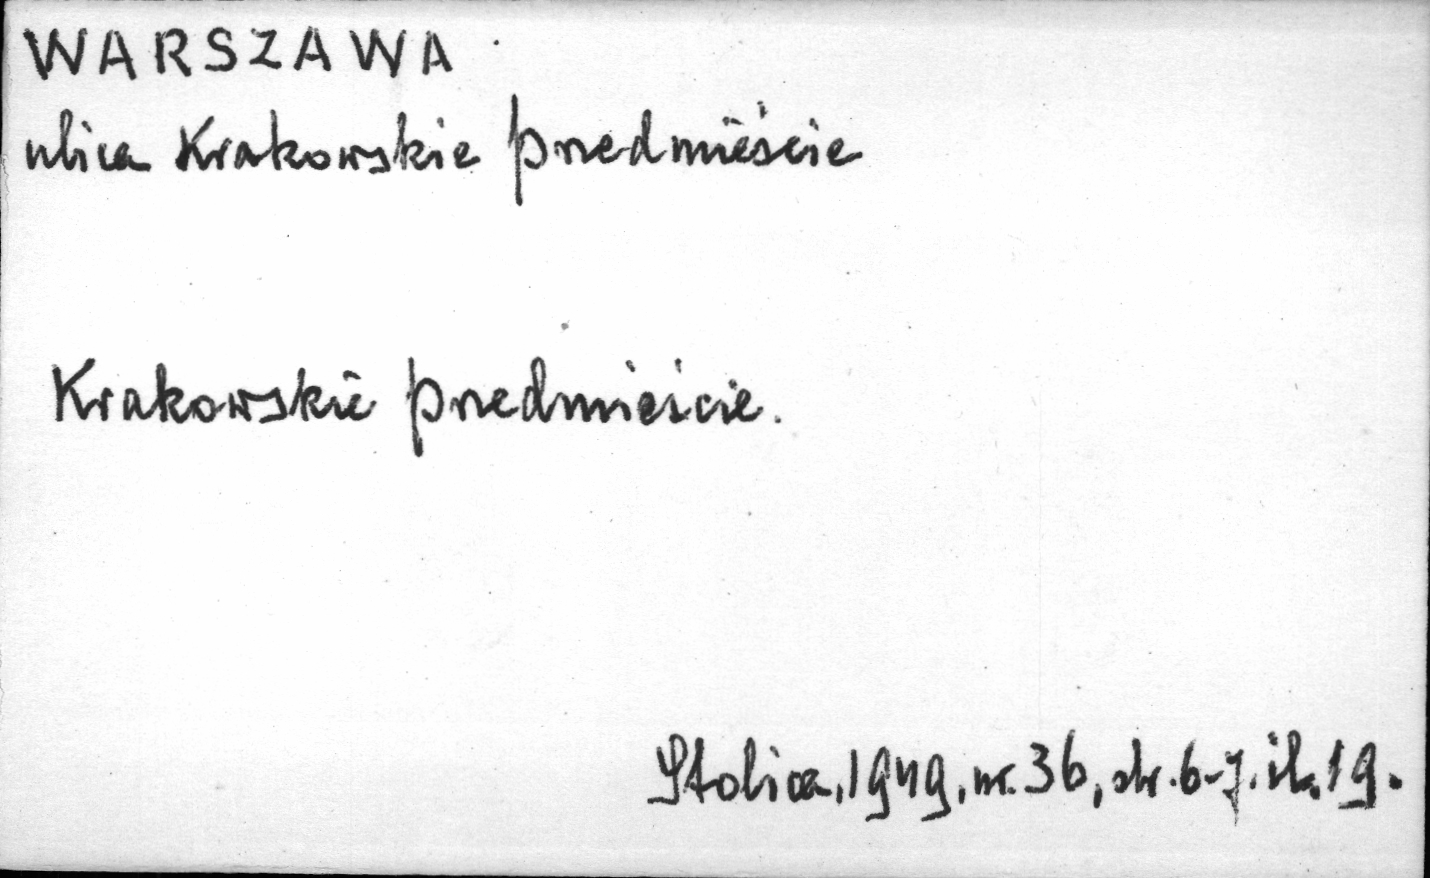 WARSZAWA
ulica Krakowskie Przedmieście
Krakowskie Przedmieście.
Stolica, 1949, nr. 36, str. 6-7. il. 19.